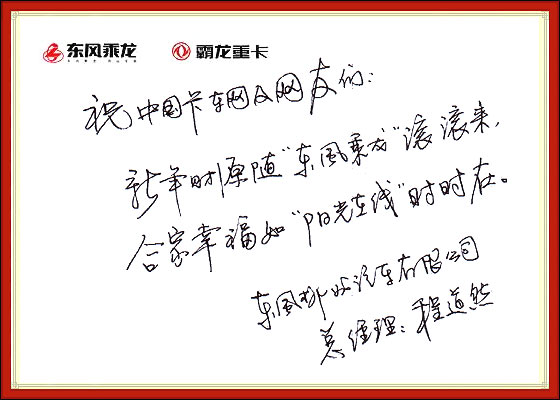 东风乘龙 霸龙重卡
祝中国卡车网及网友们：
新年财源随“东风乘龙”滚滚来，
合家幸福如“阳光在线”时时在。
东风柳州汽车有限公司
总经理：程道然